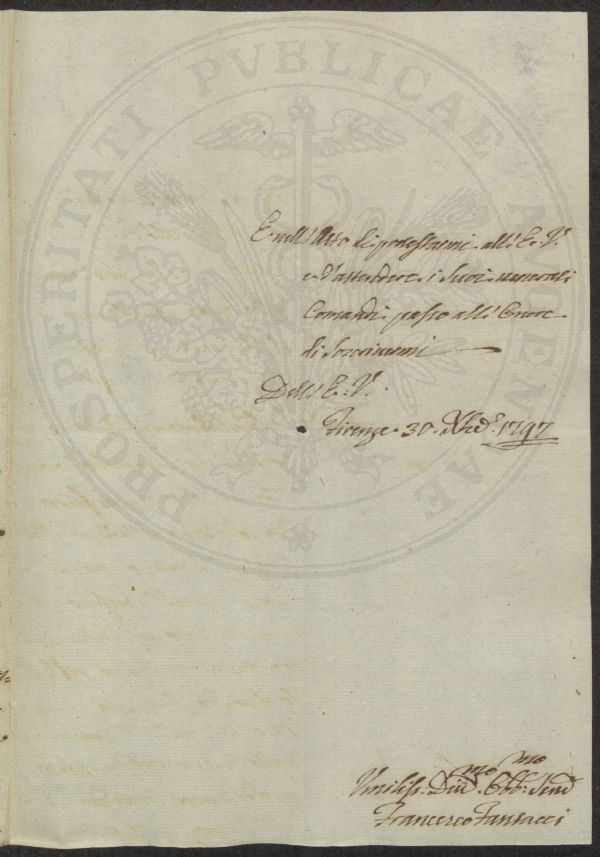 PROSPERITATI PVBLICAE AVGENDAE
E nell'Atto di protestarmi all'E. V.
e d'attendere i Suoi venerati
Comandi passo all'Onore
di soscrivermi
Dell'E. V.
Firenze 30. Xbre 1797
Umiliss. Dmo Obbmo Serv
Francesco